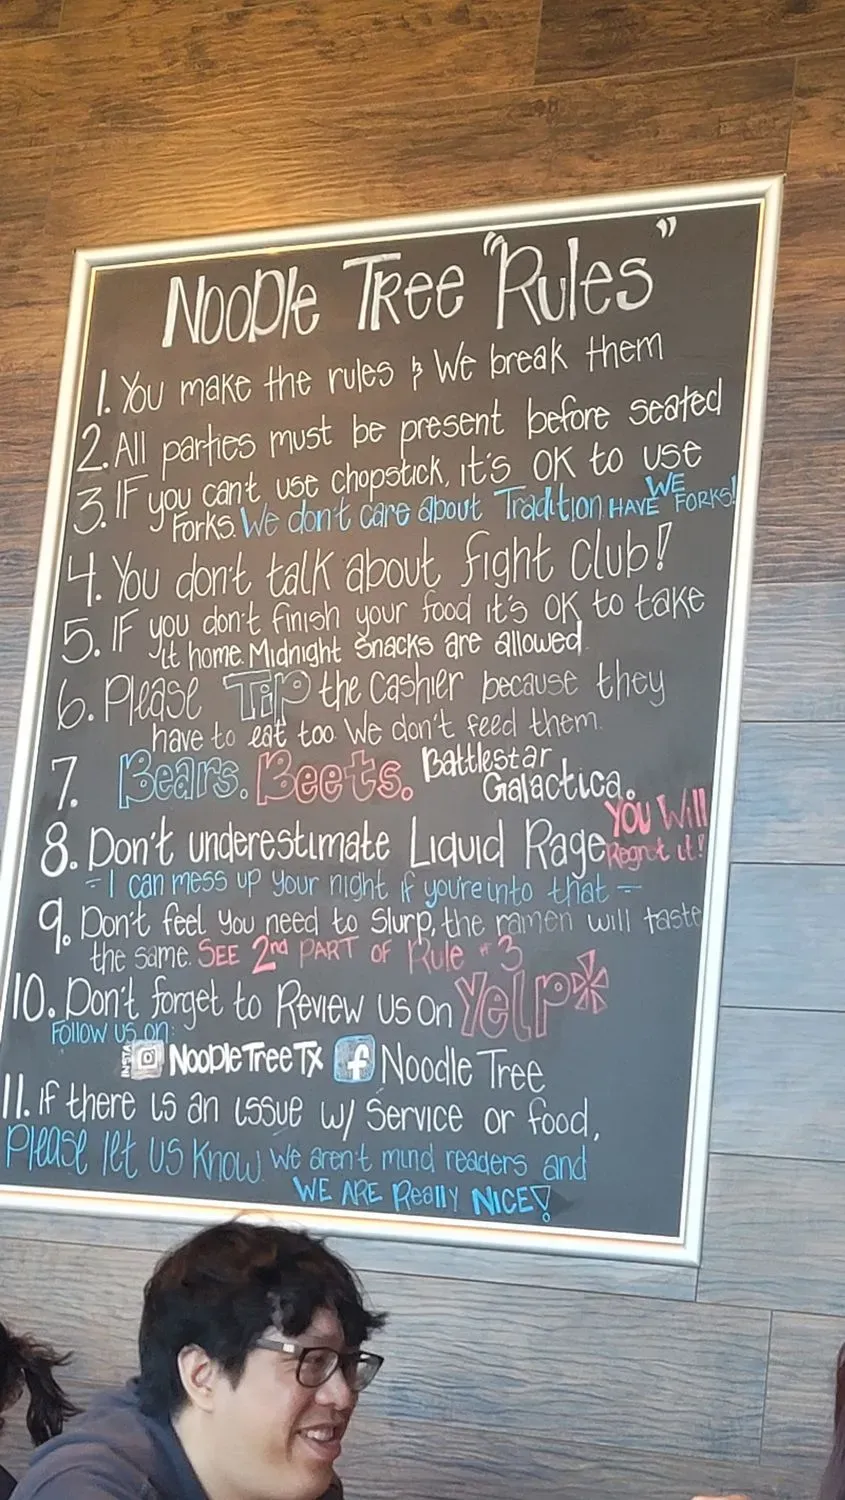 Noodle Tree "Rules"
1. You make the rules & We break them
2. All parties must be present before seated
3. If you can't use chopstick, it's OK to use
Forks. We don't care about Tradition WE HAVE FORKS!
4. You don't talk about fight club!
5. If you don't finish your food it's OK to take
it home. Midnight Snacks are allowed.
6. Please Tip the Cashier because they
have to eat too. We don't feed them.
7. Bears. Beets. Battlestar
Galactica.
8. Don't underestimate Liquid Rage You Will
Regret it!
- I can mess up your night if you're into that -
9. Don't feel you need to Slurp, the ramen will taste
the same. SEE 2nd PART OF Rule #3
10. Don't forget to Review us on Yelp*
Follow us on:
INSTA NoodleTreeTx f Noodle Tree
11. If there is an issue w/ Service or food,
Please let us know. We aren't mind readers and
WE ARE Really NICE!